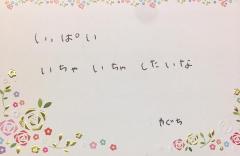 いっぱい
いちゃいちゃしたいな
やぐち